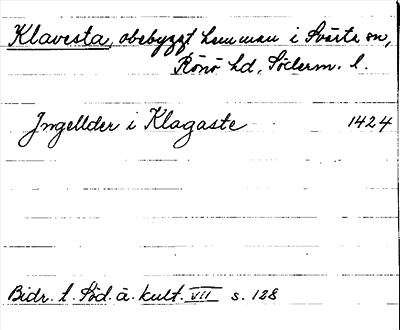 Klavesta, obebyggt hemman i Svärta sn,
Rönö hd, Söderm. l.
Ingellder i Klagaste 1424
Bidr. t. Söd. ä. kult. VII s. 128